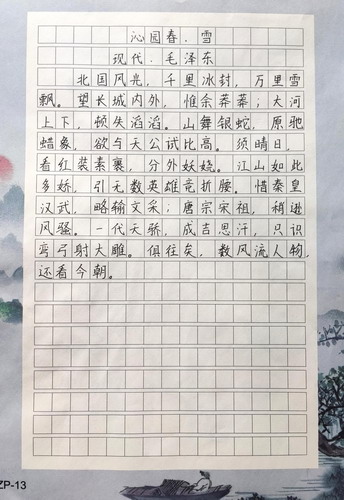 沁园春.雪
现代.毛泽东
北国风光，千里冰封，万里雪
飘。望长城内外，惟余莽莽；大河
上下，顿失滔滔。山舞银蛇，原驰
蜡象，欲与天公试比高。须晴日，
看红装素裹，分外妖娆。江山如此
多娇，引无数英雄竞折腰。惜秦皇
汉武，略输文采；唐宗宋祖，稍逊
风骚。一代天骄，成吉思汗，只识
弯弓射大雕。俱往矣，数风流人物，
还看今朝。
ZP-13